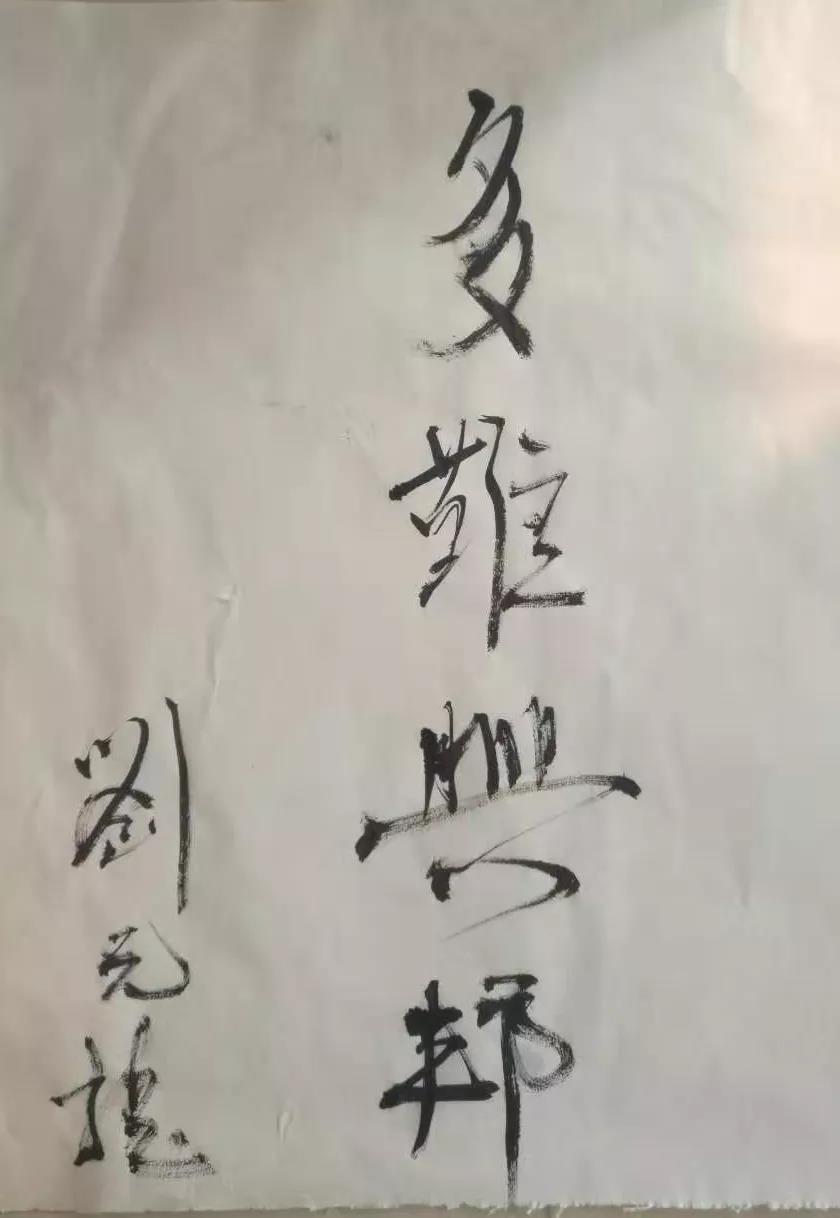 多難興邦
劉元龍